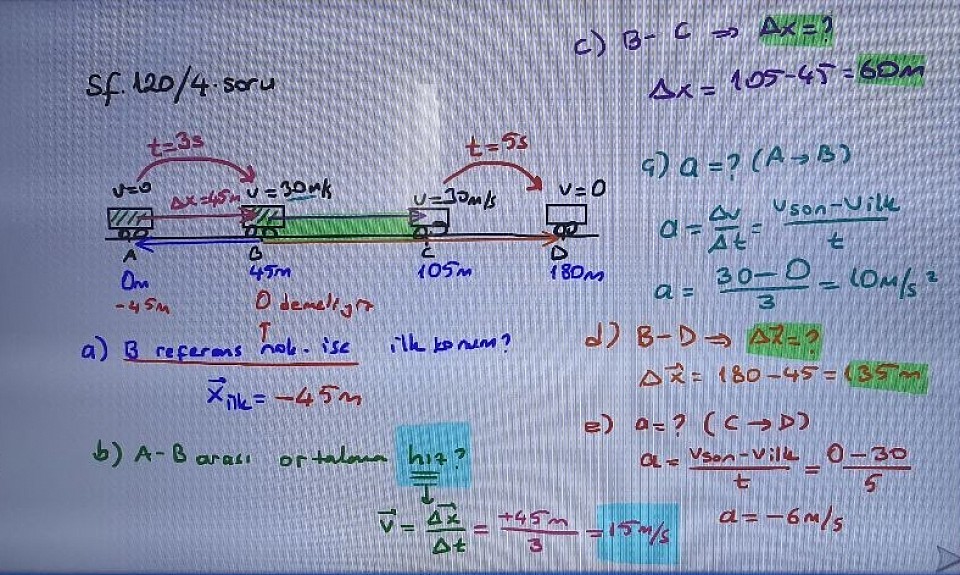 Sf.120/4.soru
t=3s
t=5s
v=0
Δx=45m
v=30m/s
v=30m/s
v=0
A
B
C
D
0m
45m
105m
180m
-45m
0 demeliyiz
a) B referans nok. ise ilk konum?
x⃗ilk = -45m
b) A-B arası ortalama hız?
v⃗ = Δx⃗/Δt = +45m/3 = 15m/s
c) B-C ⇒ Δx=?
Δx = 105-45 = 60m
ç) a=? (A→B)
a = Δv/Δt = vson-vilk/t
a = 30-0/3 = 10m/s²
d) B-D ⇒ Δx⃗=?
Δx⃗ = 180-45 = 135m
e) a=? (C→D)
a = vson-vilk/t = 0-30/5
a = -6m/s